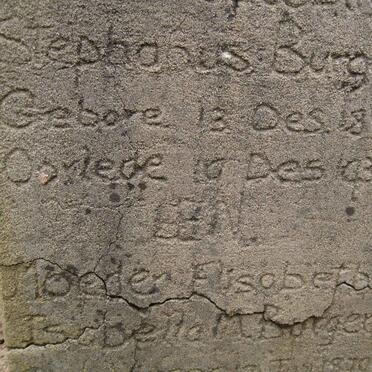 Stephanus Burg
Gebore 13 Des 18
Oorlede 10 Des 193
EEN
Moeder Elisabeta
Isabella M. Burger